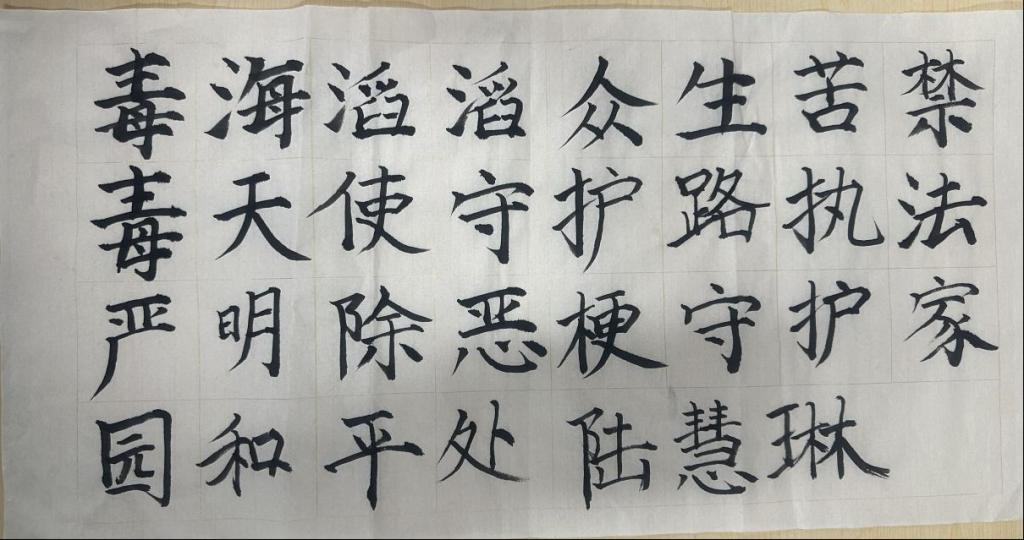 毒海滔滔众生苦禁
毒天使守护路执法
严明除恶梗守护家
园和平处陆慧琳